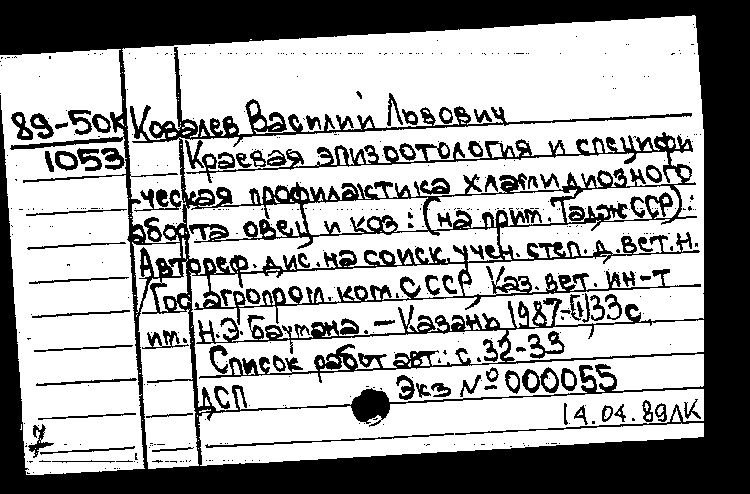 89-50К Ковалев, Василий Львович
1053 Краевая эпизоотология и специфи
-ческая профилактика хламидиозного
аборта овец и коз : (на прим. Тадж ССР) :
Автореф. дис. на соиск. учен. степ. д. вет. н.
/Гос. агропром. ком. СССР, Каз. вет. ин-т
им. Н.Э. Баумана. – Казань, 1987. 33 с.
Список работ авт.: с. 32-33
ДСП Экз № 000055
14.04.89 ЛК
7